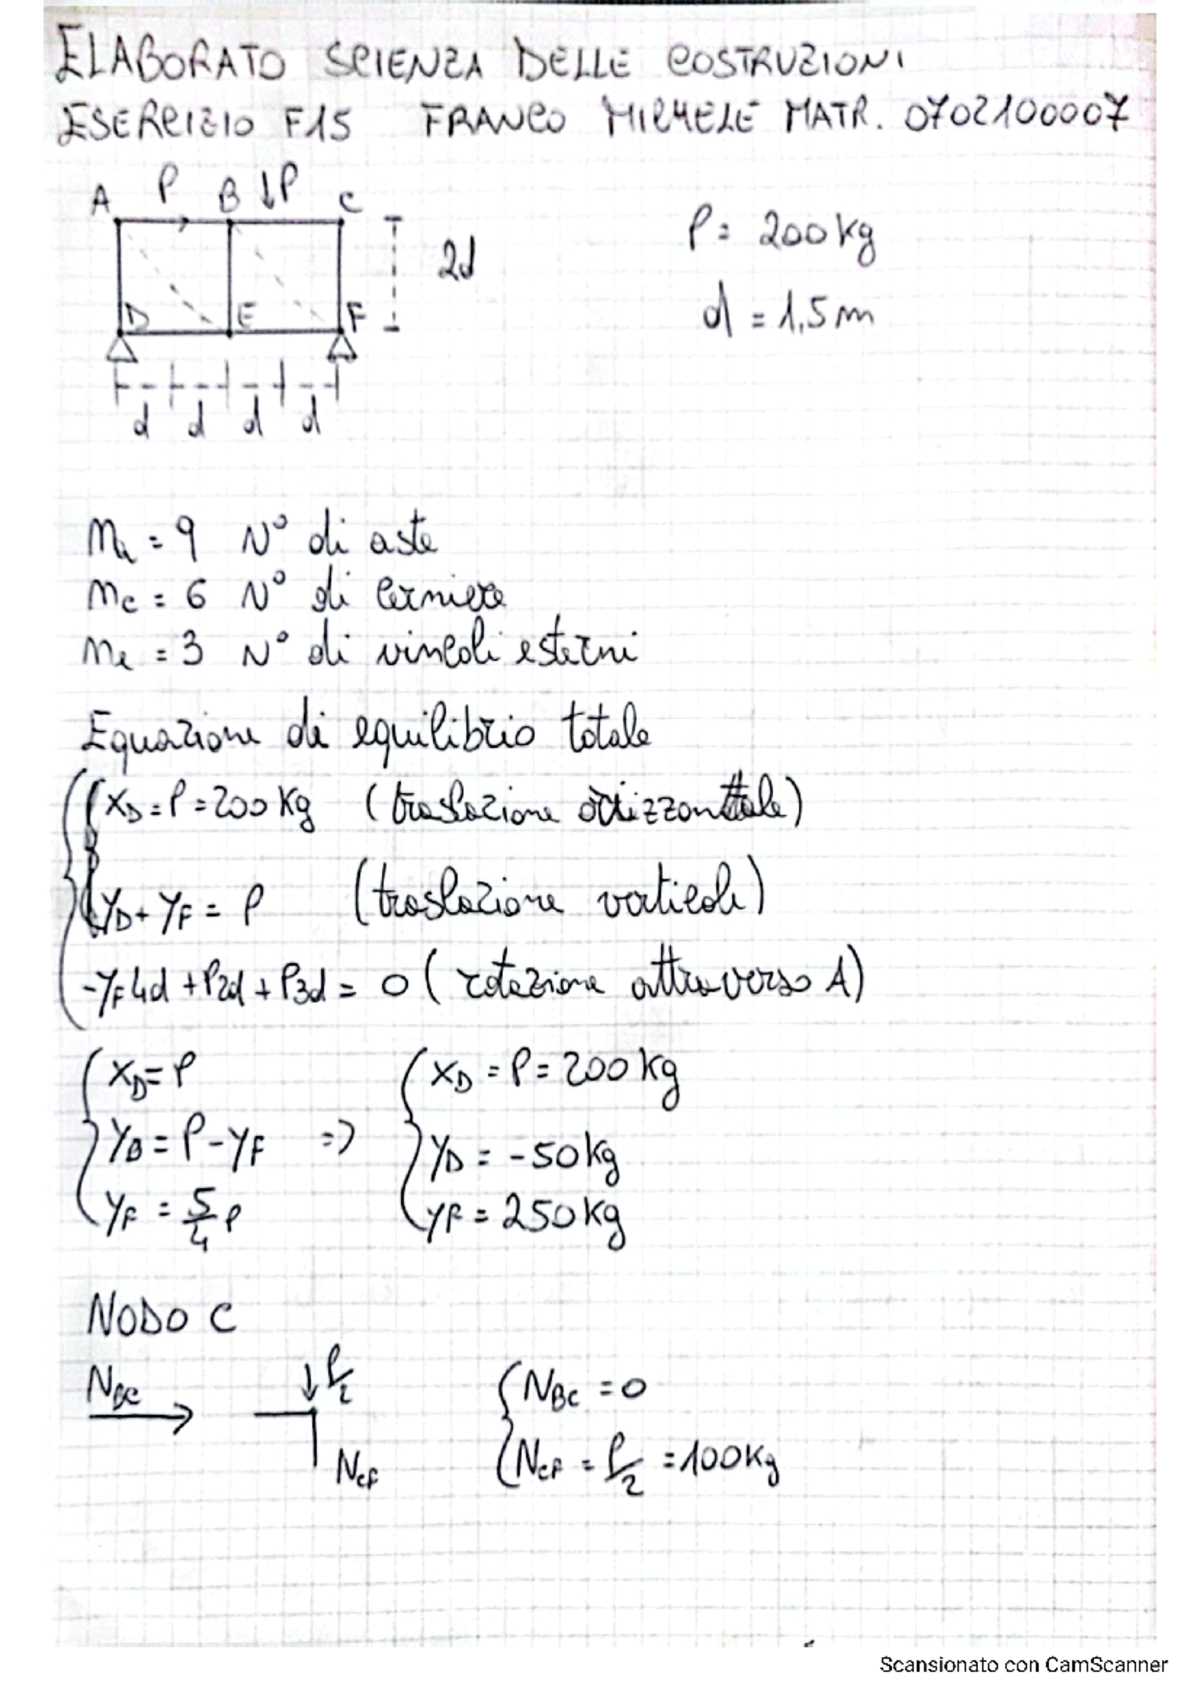 ELABORATO SCIENZA DELLE COSTRUZIONI
ESERCIZIO F15 FRANCO MICHELE MATR. 0702100007
A P B P C
P = 200 kg
2d
d = 1,5 m
D E F
d d d d
Mi = 9 N° di aste
Mc = 6 N° di cerniere
Me = 3 N° di vincoli esterni
Equazione di equilibrio totale
XD = P = 200 Kg (traslazione orizzontale)
YD + YF = P (traslazione verticale)
-YF4d + P2d + P3d = 0 (rotazione attraverso A)
XD = P
XD = P = 200 kg
YB = P - YF =>
YD = -50 kg
YF = 5/4 P
YF = 250 kg
NODO C
NBC
P/2
NBC = 0
NCF
NCF = P/2 = 100 Kg
Scansionato con CamScanner